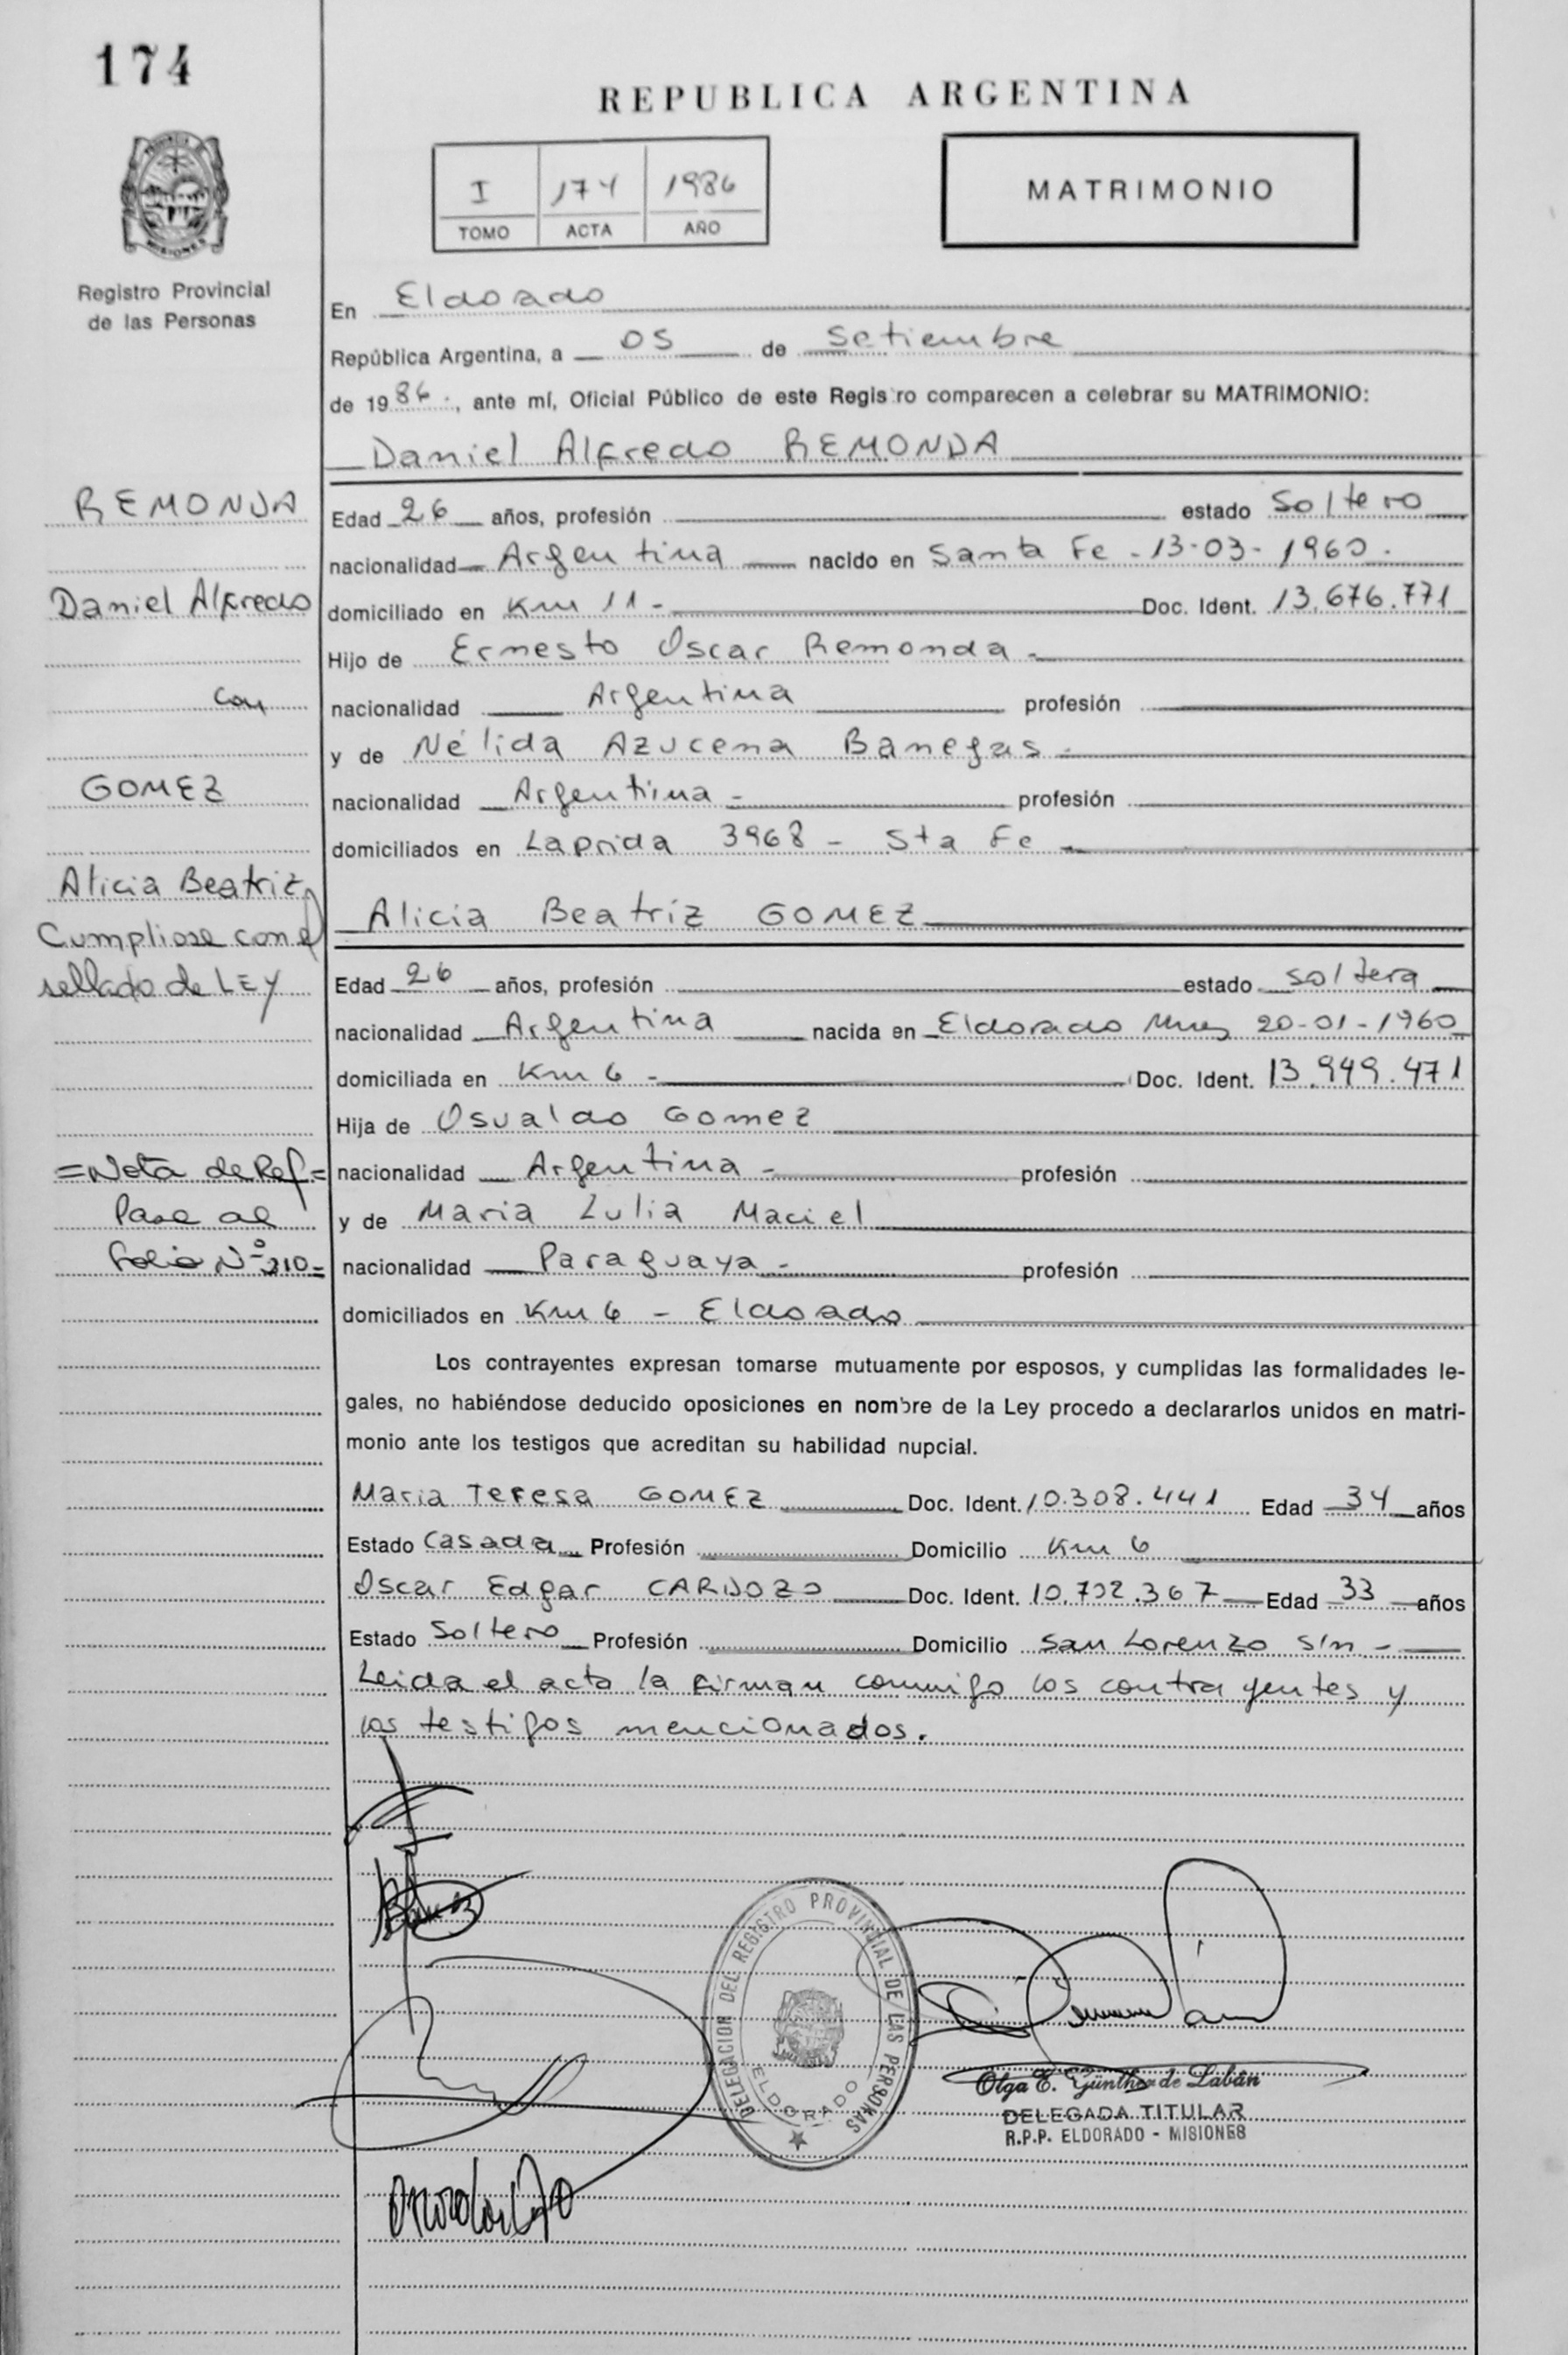 174
REPUBLICA ARGENTINA
I 174 1986
TOMO ACTA AÑO
MATRIMONIO
PROVINCIA DE MISIONES
Registro Provincial
de las Personas
En Eldorado
República Argentina, a 05 de Setiembre
de 1986., ante mí, Oficial Público de este Registro comparecen a celebrar su MATRIMONIO:
Daniel Alfredo REMONDA
REMONDA
Daniel Alfredo
con
GOMEZ
Alicia Beatriz
Cumpliose con el
sellado de LEY
=Nota de Ref=
Pase al
Folio Nº 210=
Edad 26 años, profesión estado Soltero
nacionalidad Argentina nacido en Santa Fe - 13-03-1960.
domiciliado en Km 11 - Doc. Ident. 13.676.771
Hijo de Ernesto Oscar Remonda -
nacionalidad Argentina profesión
y de Nélida Azucena Banegas -
nacionalidad Argentina - profesión
domiciliados en Laprida 3968 - Sta Fe
Alicia Beatriz GOMEZ
Edad 26 años, profesión estado soltera
nacionalidad Argentina nacida en Eldorado Mnes 20-01-1960
domiciliada en Km 6 - Doc. Ident. 13.949.471
Hija de Osvaldo Gomez
nacionalidad Argentina - profesión
y de Maria Julia Maciel
nacionalidad Paraguaya - profesión
domiciliados en Km 6 - Eldorado
Los contrayentes expresan tomarse mutuamente por esposos, y cumplidas las formalidades le-
gales, no habiéndose deducido oposiciones en nombre de la Ley procedo a declararlos unidos en matri-
monio ante los testigos que acreditan su habilidad nupcial.
Maria Teresa GOMEZ Doc. Ident. 10.308.441 Edad 34 años
Estado Casada Profesión Domicilio Km 6
Oscar Edgar CARDOZO Doc. Ident. 10.702.367 Edad 33 años
Estado Soltero Profesión Domicilio San Lorenzo s/n -
Leida el acta la firman conmigo los contrayentes y
los testigos mencionados.
DELEGACION DEL REGISTRO PROVINCIAL DE LAS PERSONAS
ELDORADO
Olga E. Günther de Labán
DELEGADA TITULAR
R.P.P. ELDORADO - MISIONES